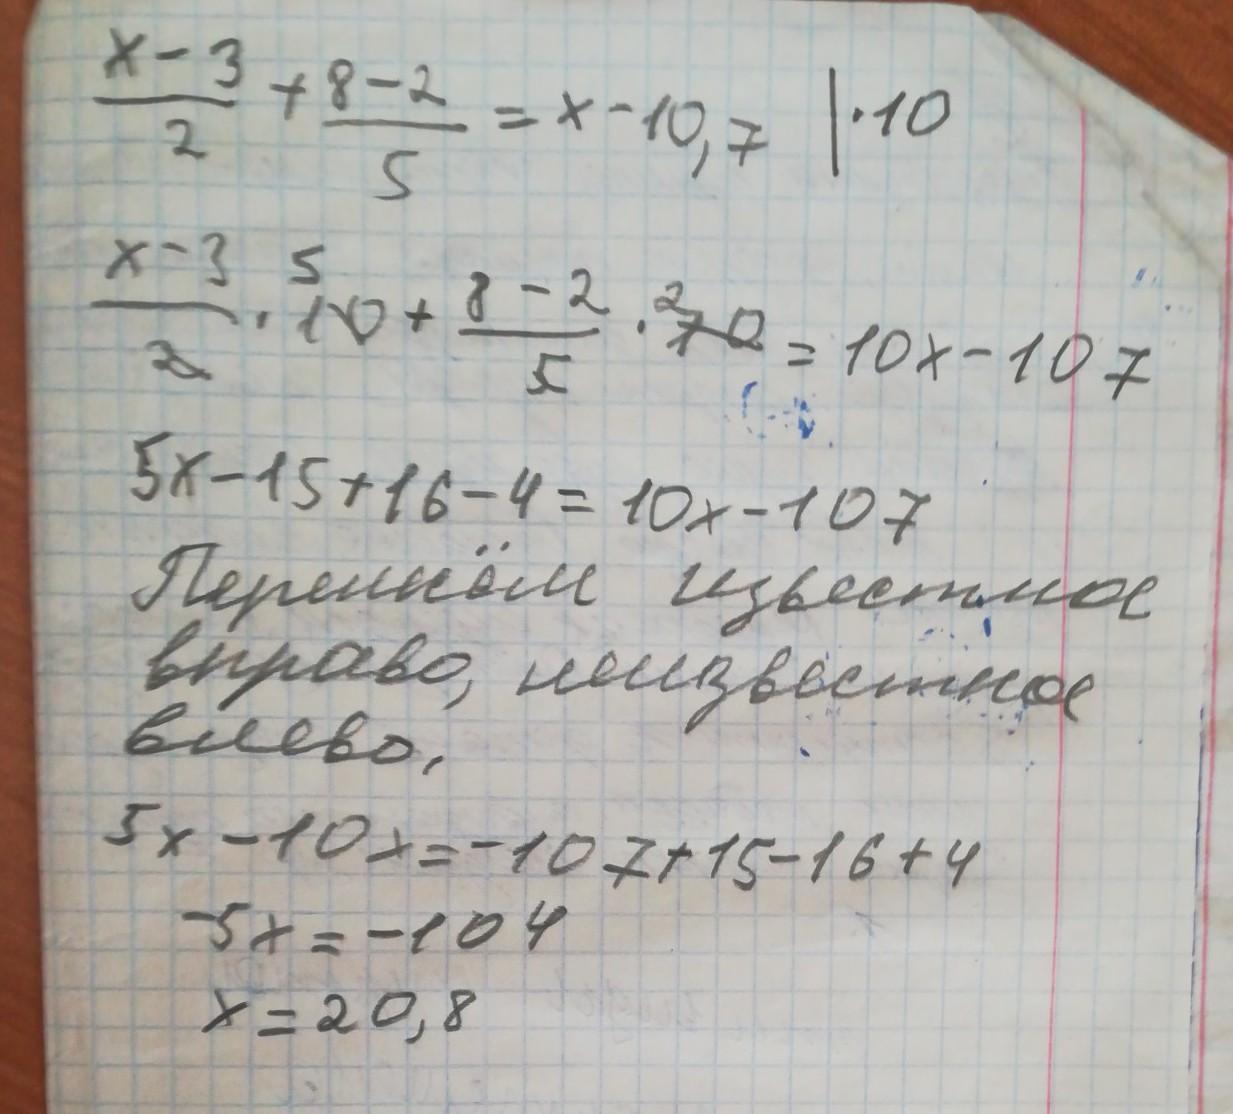 x-3/2 + 8-2/5 = x-10,7 | ·10
x-3/2 · 10 5 + 8-2/5 · 10 2 = 10x-107
5x-15+16-4=10x-107
Перенсём известное
вправо, неизвестное
влево.
5x-10x=-107+15-16+4
-5x=-104
x=20,8